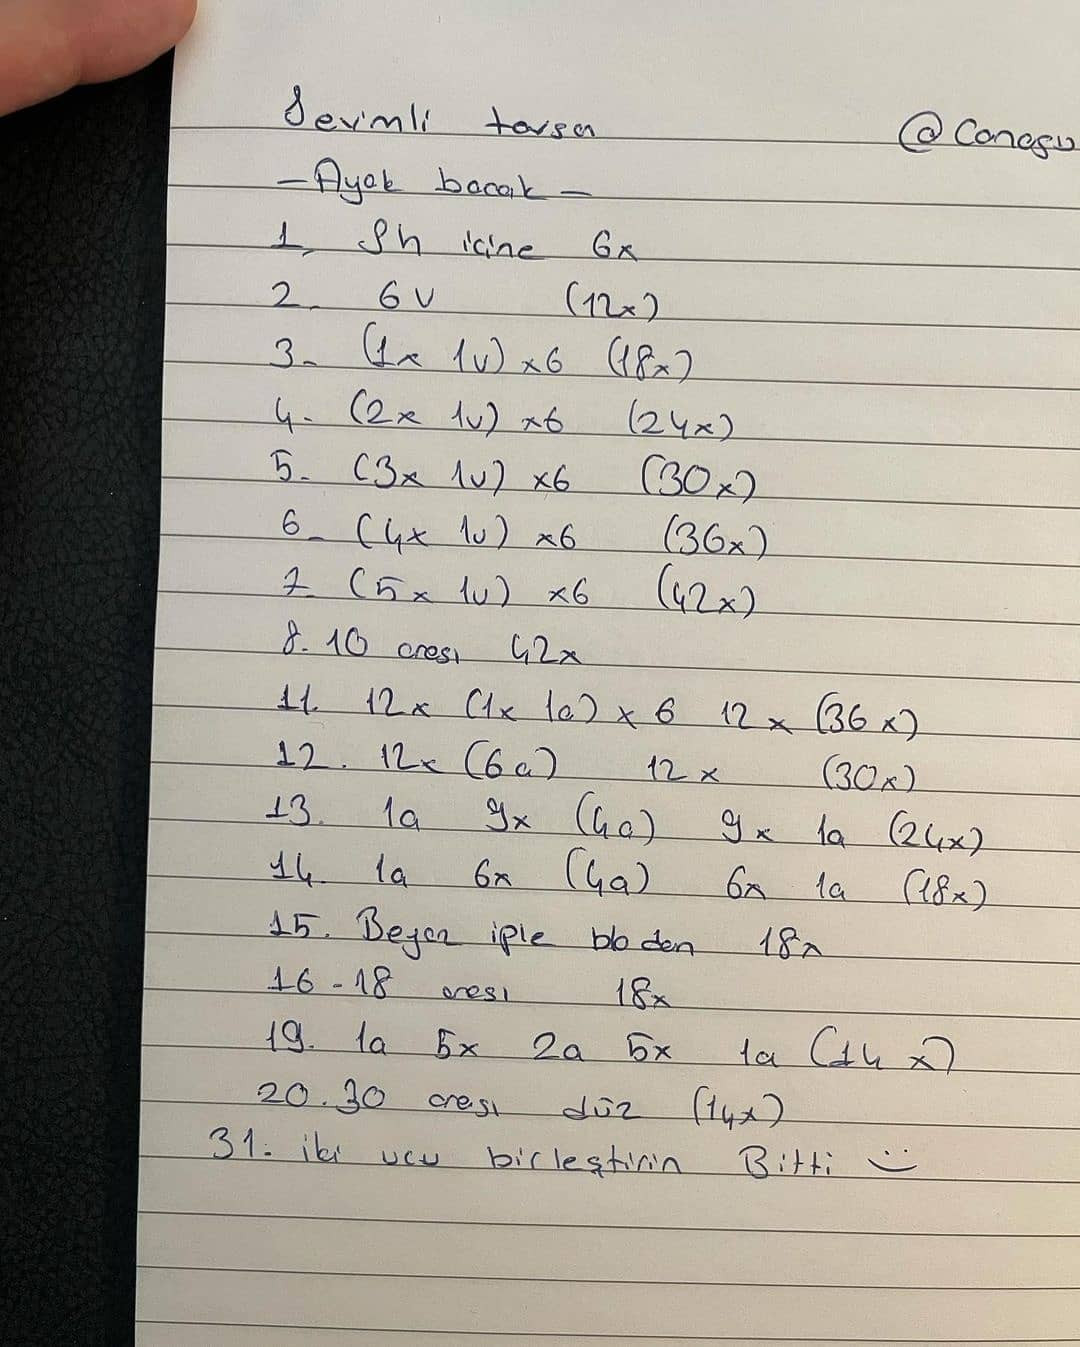 Sevimli tavşan @Conegu
-Ayak bacak-
1. Sh içine 6x
2. 6v (12x)
3- (1x 1v) x6 (18x)
4- (2x 1v) x6 (24x)
5- (3x 1v) x6 (30x)
6- (4x 1v) x6 (36x)
7- (5x 1v) x6 (42x)
8. 10 arası 42x
11. 12x (1x 1a) x 6 12x (36x)
12. 12x (6a) 12x (30x)
13. 1a 9x (4a) 9x 1a (24x)
14. 1a 6x (4a) 6x 1a (18x)
15. Beyaz iple blo den 18x
16-18 arası 18x
19. 1a 5x 2a 5x 1a (14x)
20.30 arası düz (14x)
31. iki ucu birleştirin Bitti :)